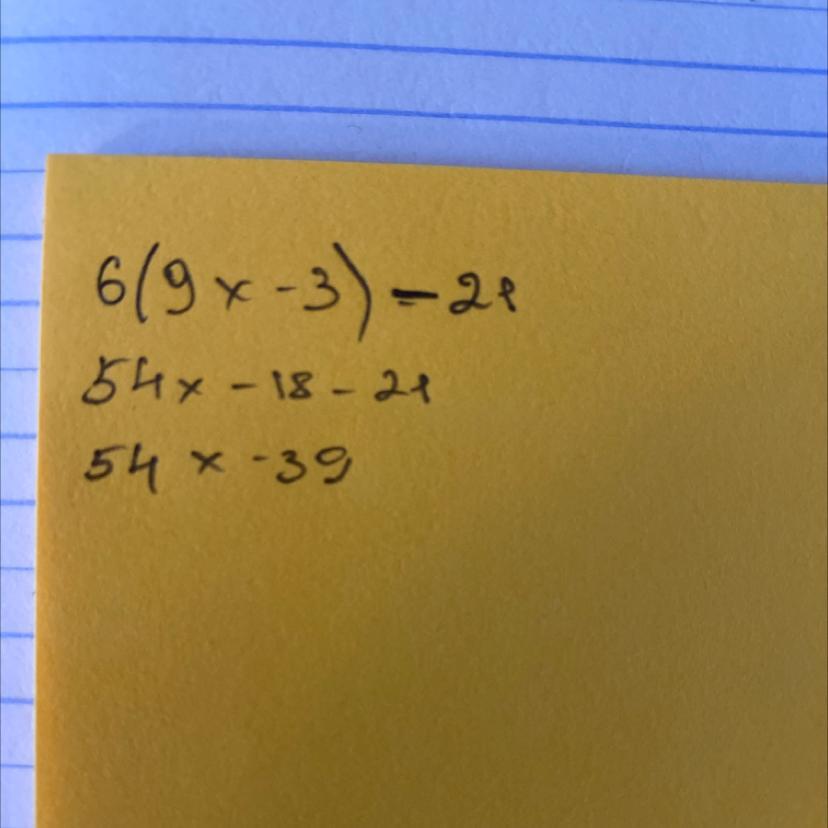 6(9x-3)-21
54x-18-21
54x-39